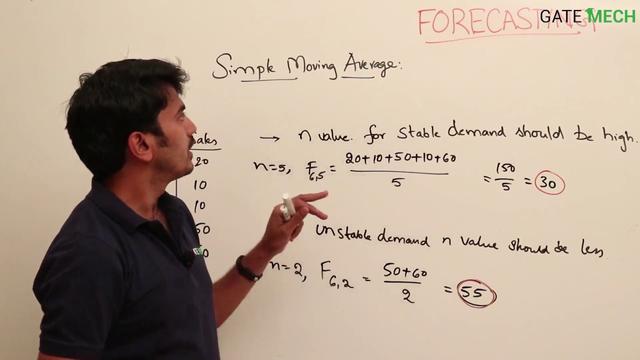 FORECASTING
GATE MECH
Simple Moving Average:
Sales
20
10
10
50
→ n value for stable demand should be high.
n=5, F6,5 = 20+10+50+10+60 / 5 = 150/5 = 30
unstable demand n value should be less
n=2, F6,2 = 50+60 / 2 = 55